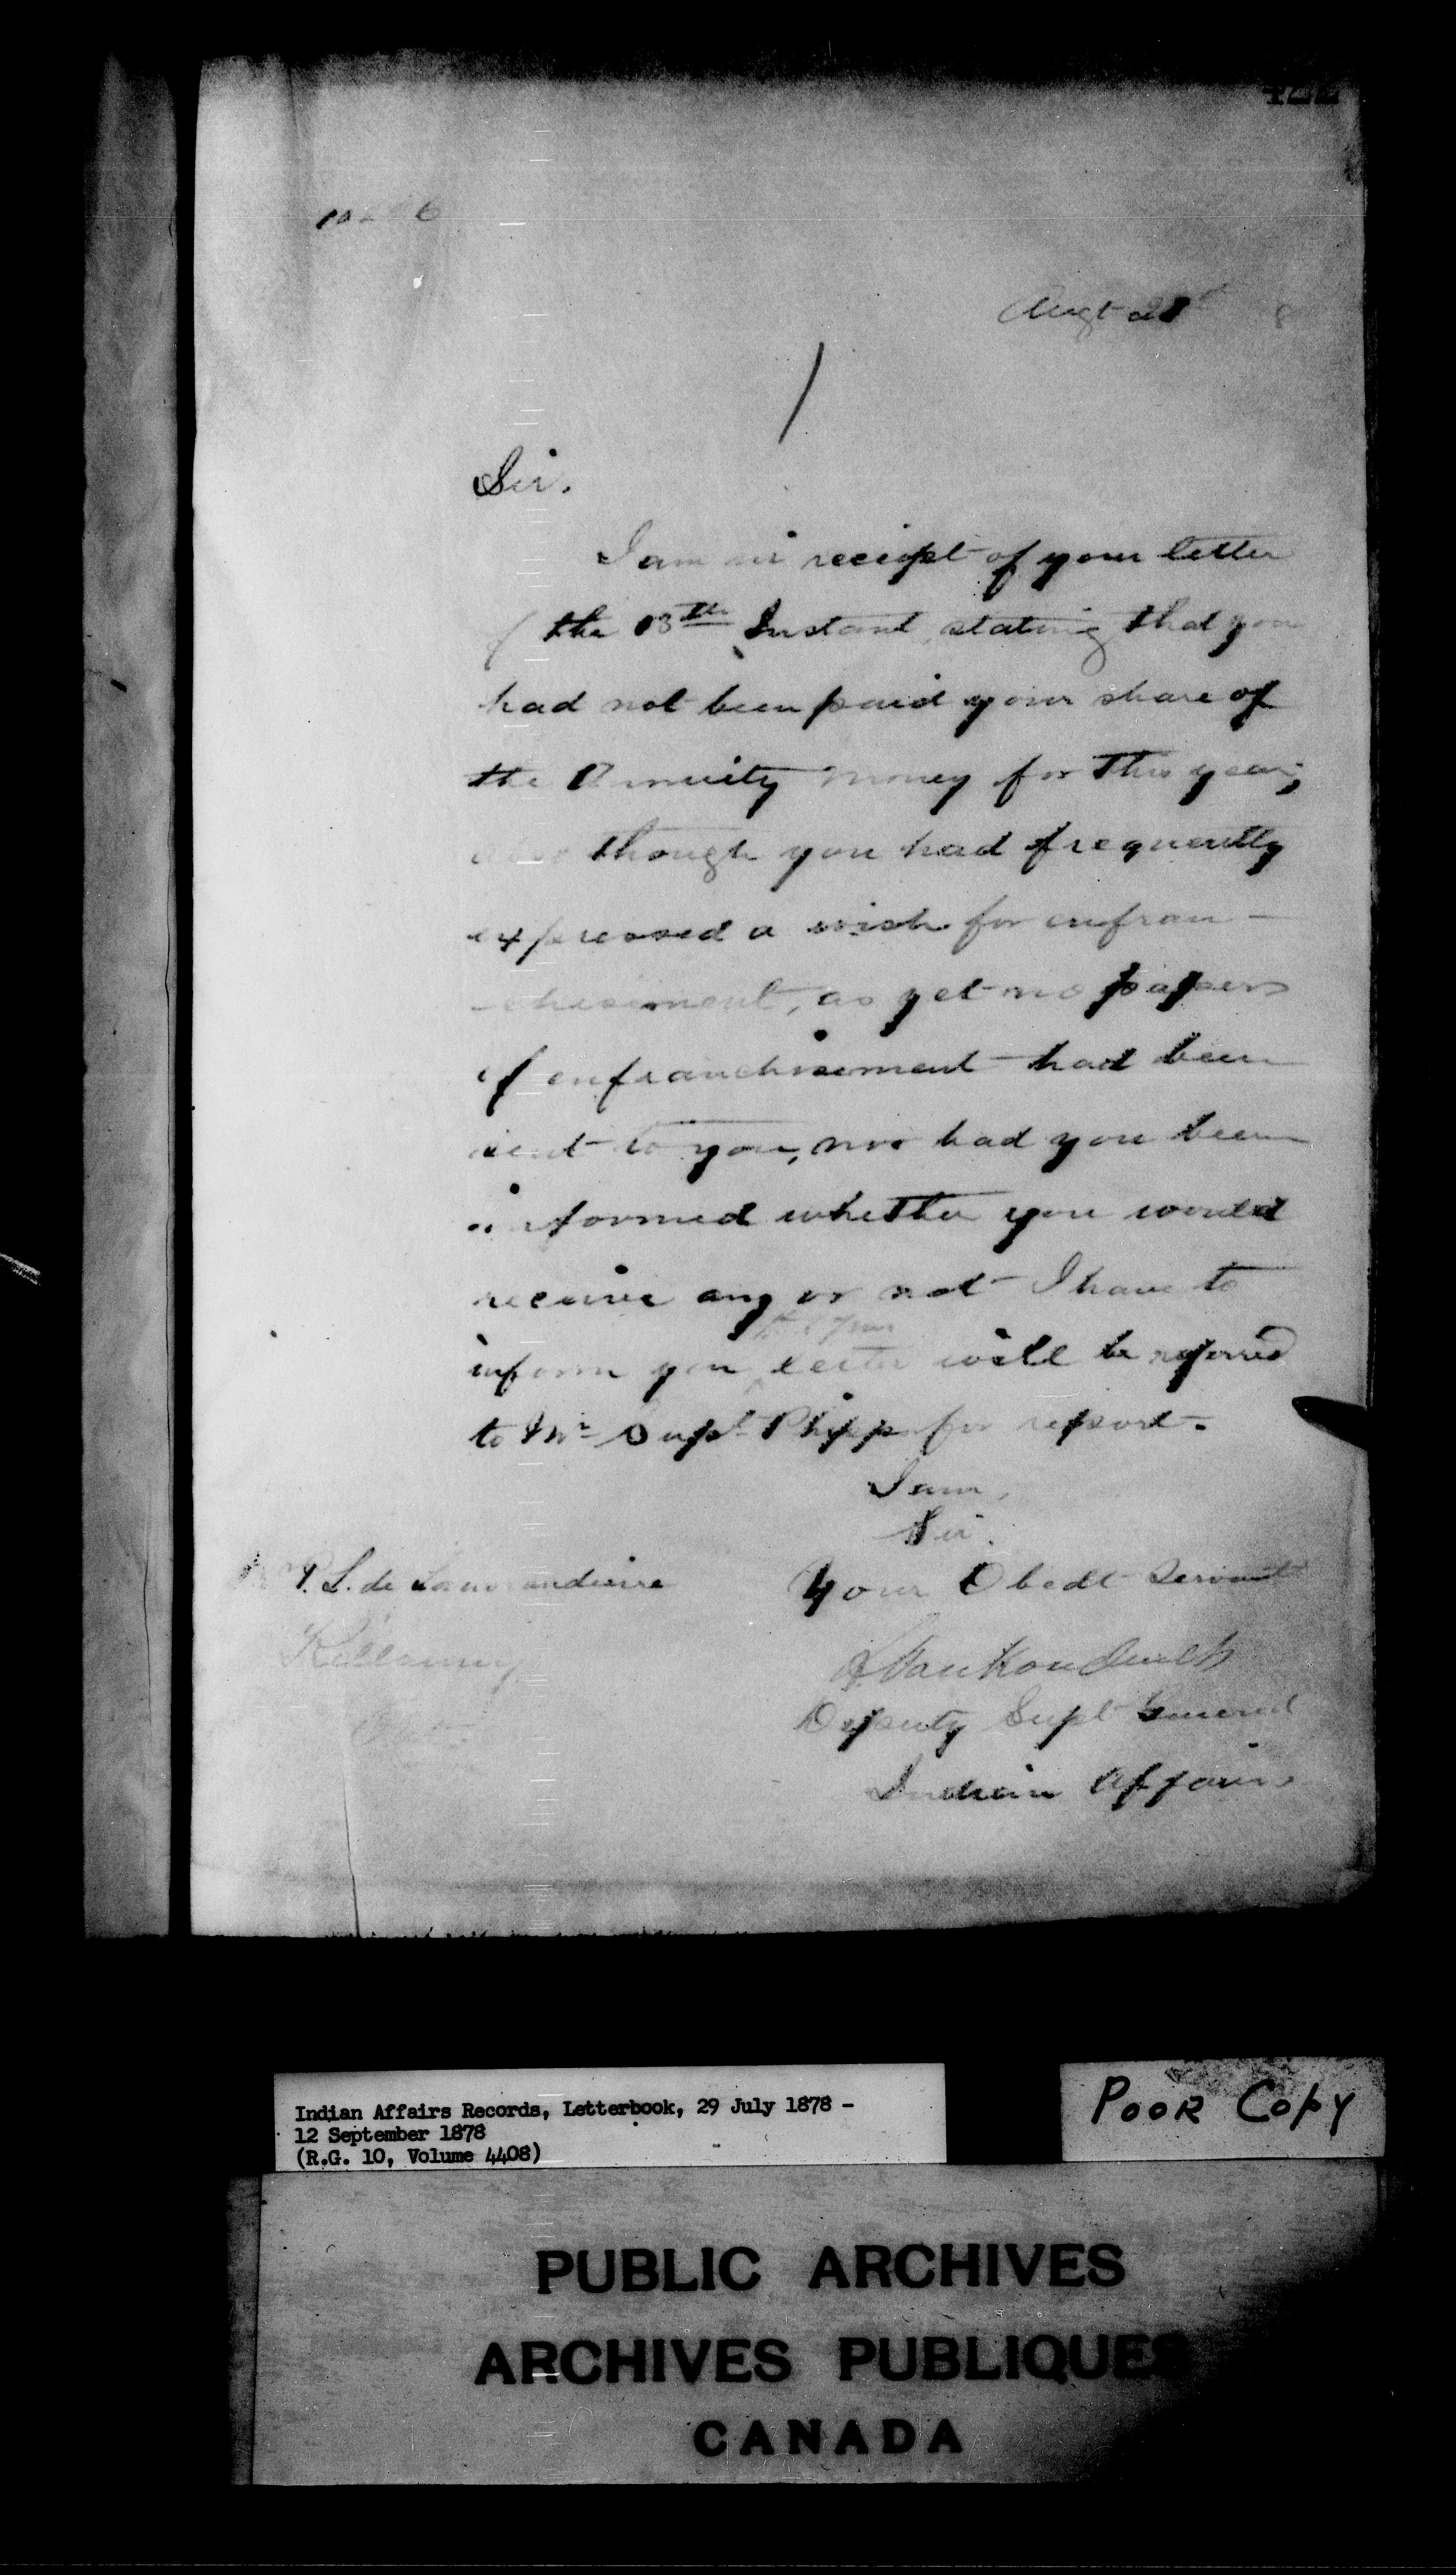 Augt 28th 8
Sir.
I am in receipt of your letter
of the 13th Instant, stating that you
had not been paid your share of
the Annuity money for this year,
though you had frequently
expressed a wish for enfran-
-chisement, as yet no papers
of enfranchisement had been
sent to you, nor had you been
informed whether you would
receive any or not I have to
that your
inform you letter will be referred
to Mr Supt Phipps for report.
I am,
Sir.
P. L. de Lamorandiere
Your Obedt Servant
Killarney
L VanKoughnet
Deputy Supt General
Indian Affairs
Indian Affairs Records, Letterbook, 29 July 1878 -
12 September 1878
(R.G. 10, Volume 4408)
POOR COPY
PUBLIC ARCHIVES
ARCHIVES PUBLIQUES
CANADA